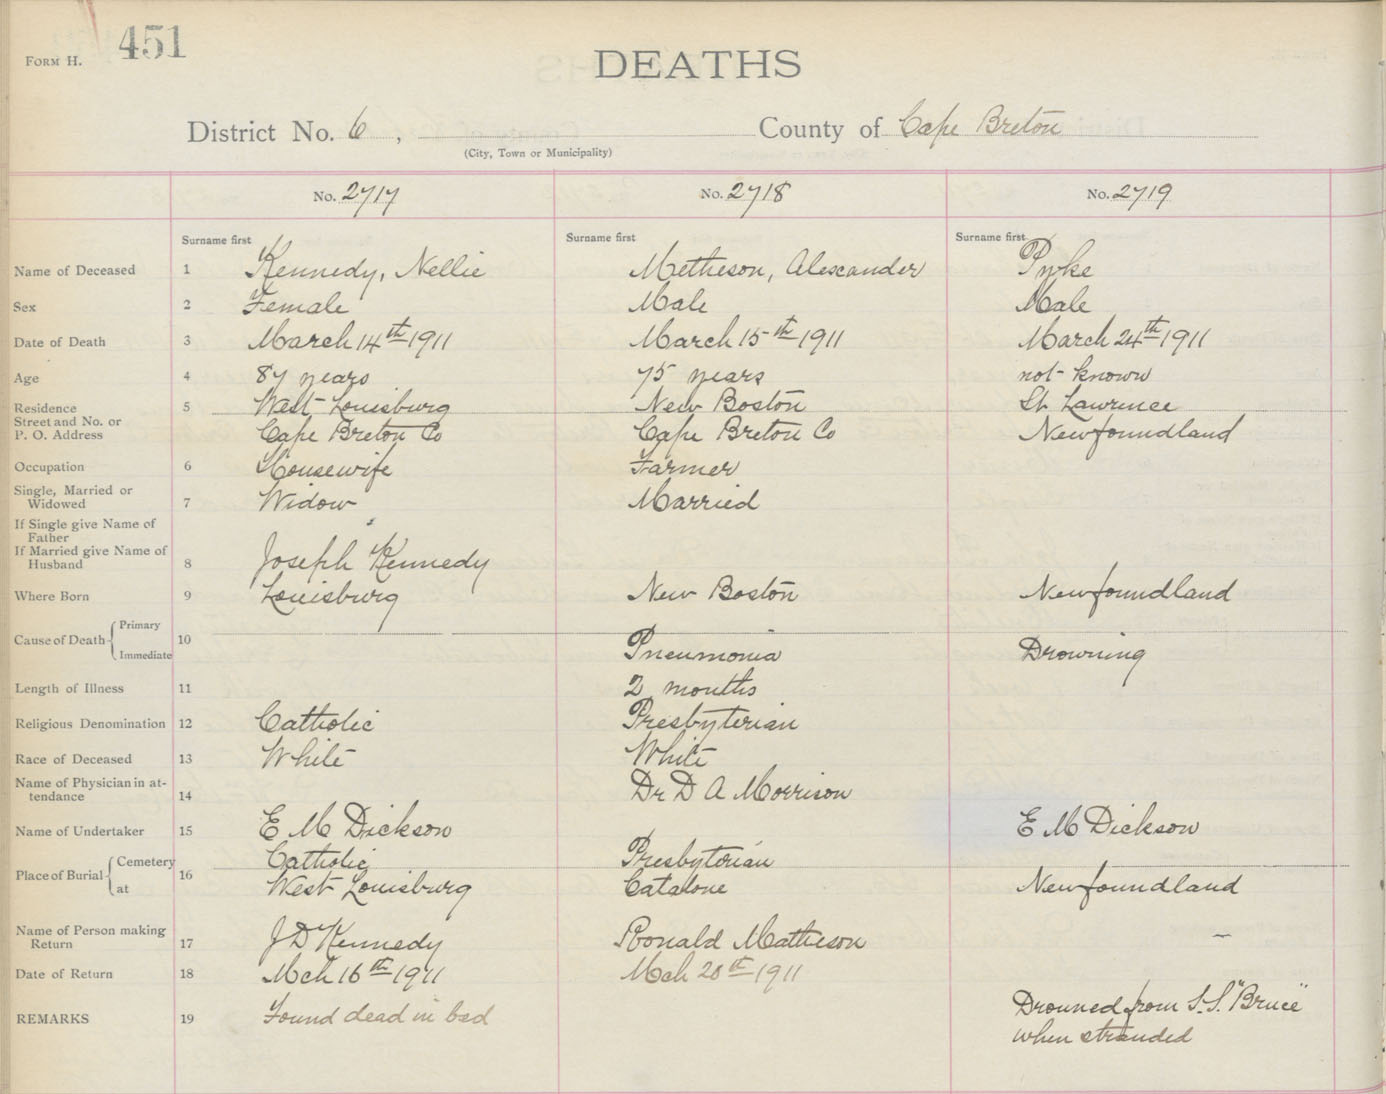 451
FORM H.
DEATHS
District No. 6, County of Cape Breton
(City, Town or Municipality)
No. 2717 No. 2718 No. 2719
Surname first Surname first Surname first
Name of Deceased 1 Kennedy, Nellie Metheson, Alexander Pyke
Sex 2 Female Male Male
Date of Death 3 March 14th 1911 March 15th 1911 March 24th 1911
Age 4 87 years 75 years not known
Residence 5 West Louisburg New Boston St. Lawrence
Street and No. or
P. O. Address Cape Breton Co Cape Breton Co Newfoundland
Occupation 6 Housewife Farmer
Single, Married or
Widowed 7 Widow Married
If Single give Name of
Father
If Married give Name of
Husband 8 Joseph Kennedy
Where Born 9 Louisburg New Boston Newfoundland
Cause of Death Primary
10
Immediate Pneumonia Drowning
Length of Illness 11 2 months
Religious Denomination 12 Catholic Presbyterian
Race of Deceased 13 White White
Name of Physician in at-
tendance 14 Dr D A Morrison
Name of Undertaker 15 E M Dickson E M Dickson
Place of Burial Cemetery 16 Catholic Presbyterian
at West Louisburg Catalone Newfoundland
Name of Person making
Return 17 J D Kennedy Ronald Matheson –
Date of Return 18 Mch 16th 1911 Mch 20th 1911
REMARKS 19 Found dead in bed Drouned from S.S. "Bruce"
when stranded